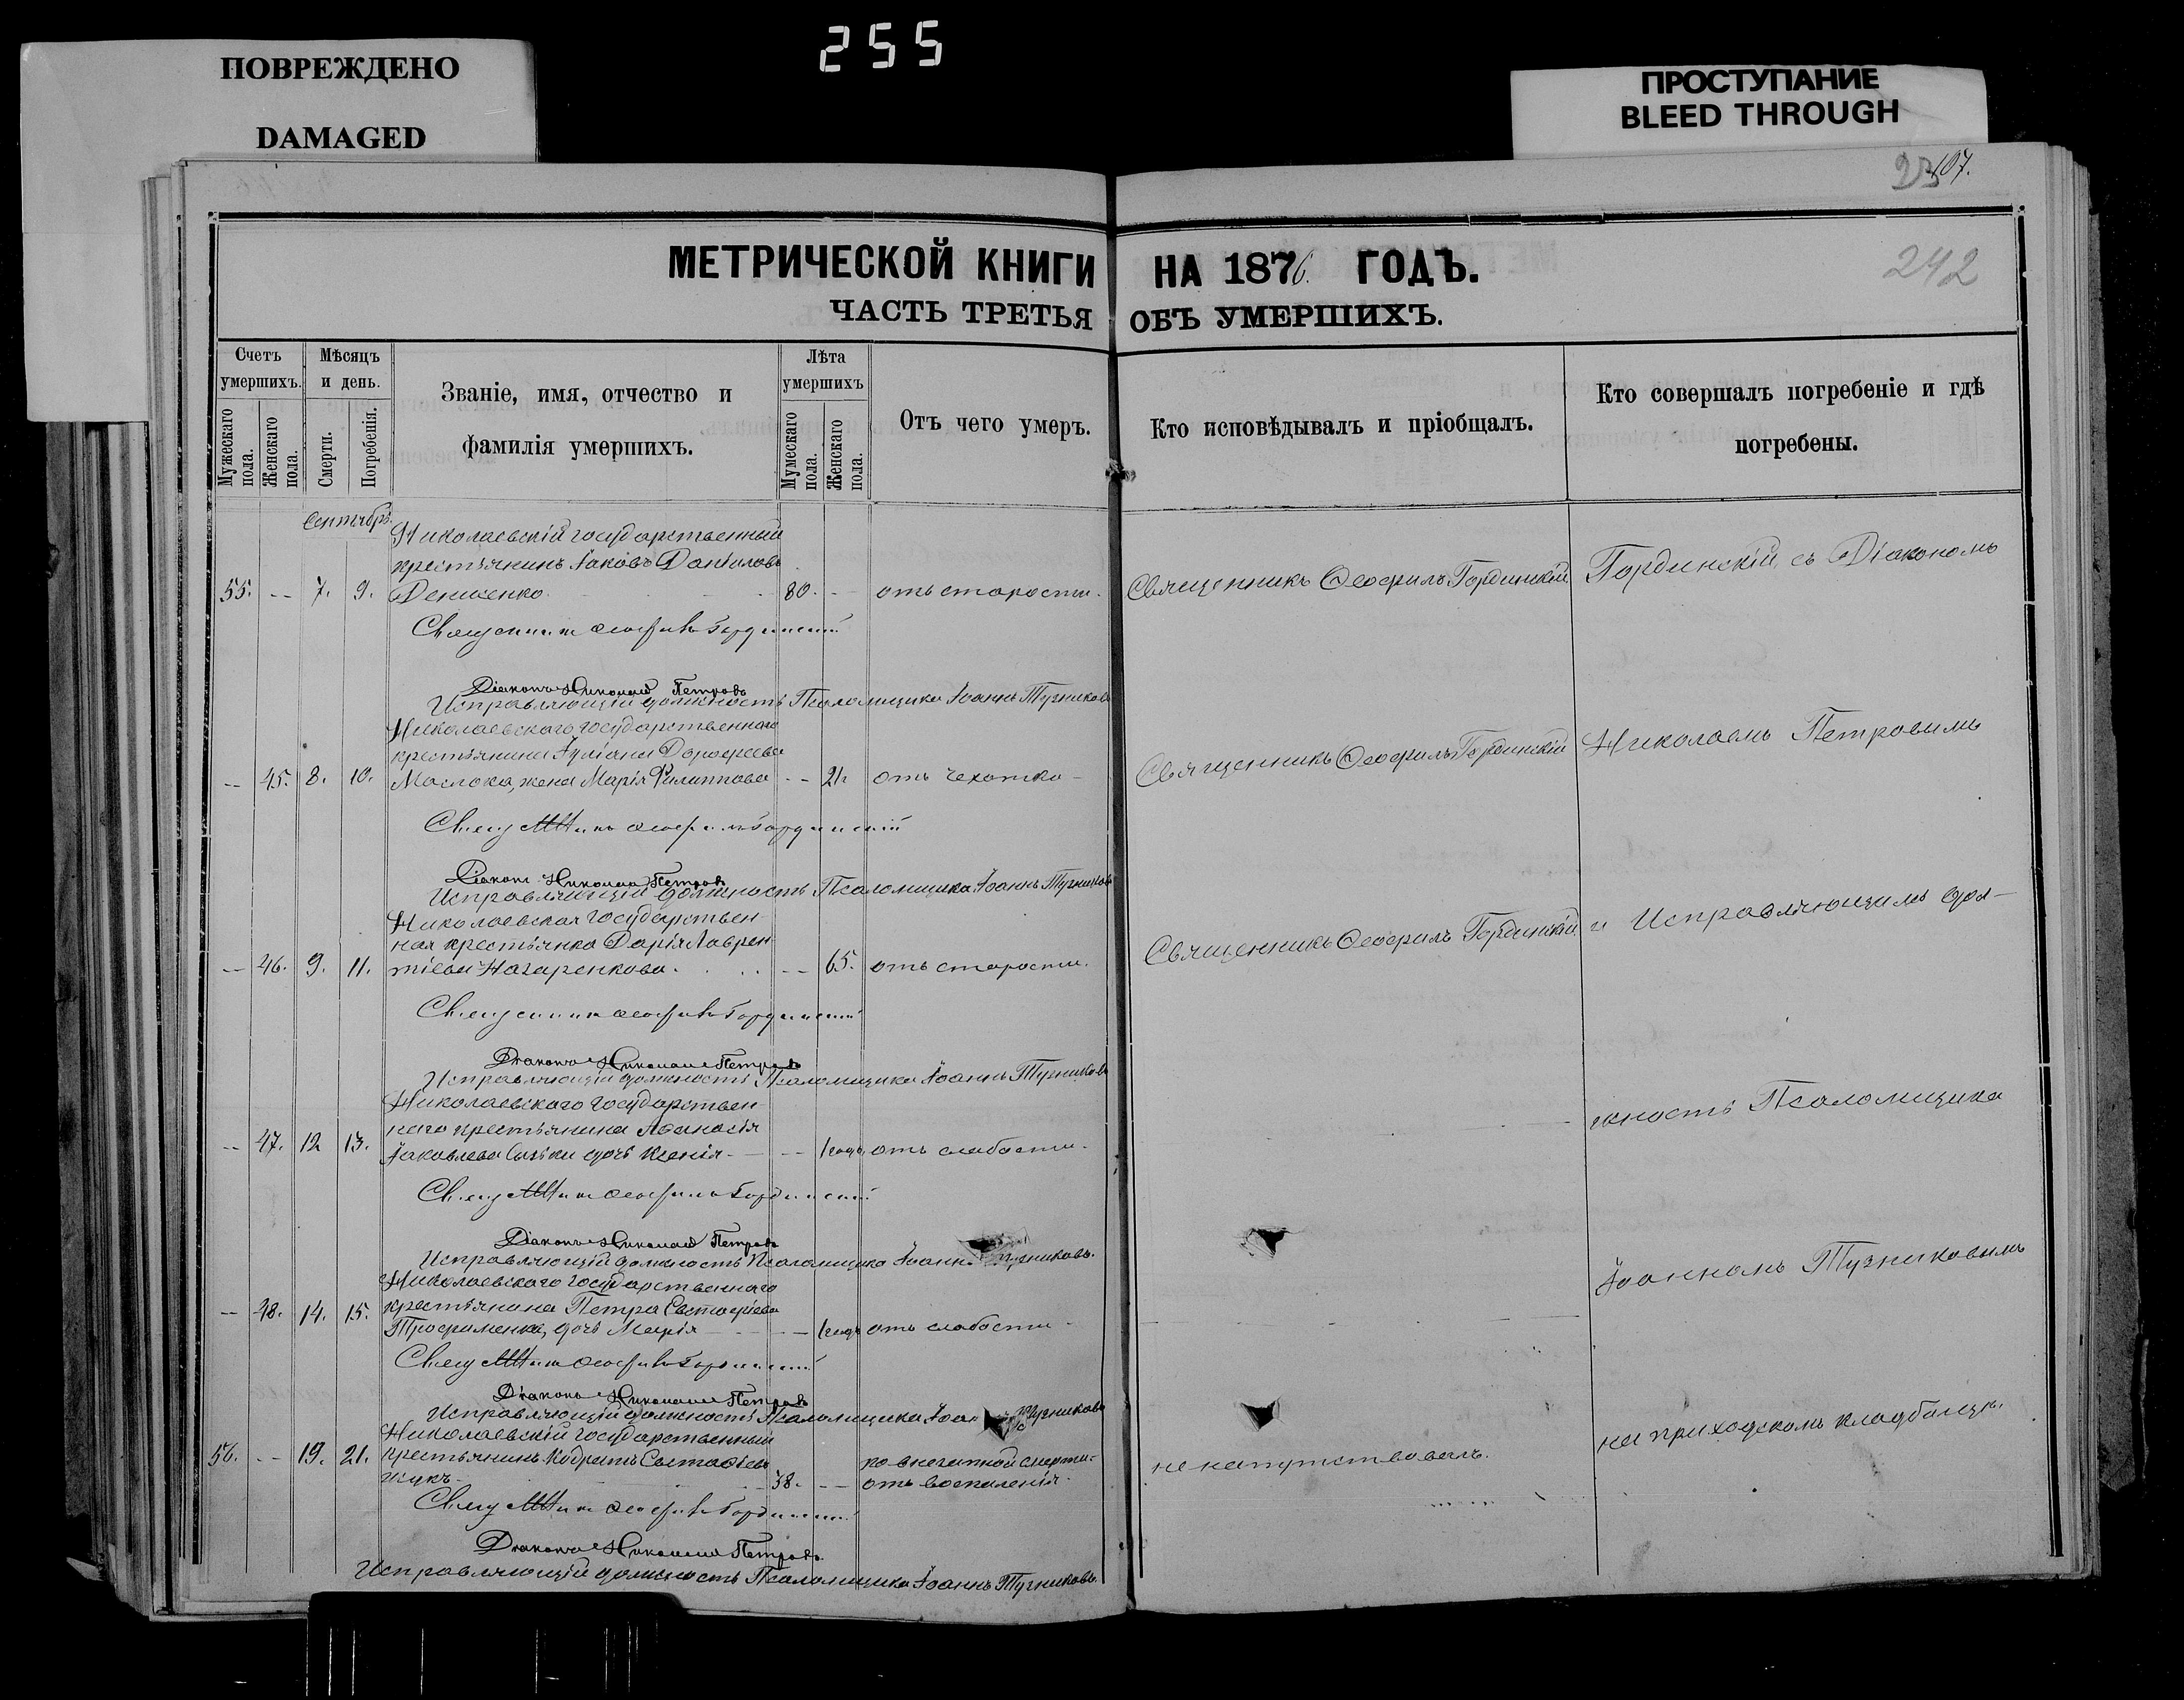 255
ПОВРЕЖДЕНО
DAMAGED
ПРОСТУПАНИЕ
BLEED THROUGH
107.
242
МЕТРИЧЕСКОЙ КНИГИ НА 1876. ГОДЪ.
ЧАСТЬ ТРЕТЬЯ ОБЪ УМЕРШИХЪ.
Счетъ умершихъ.
Мужескаго пола.
Женскаго пола.
Мѣсяцъ и день.
Смерти.
Погребенія.
Званіе, имя, отчество и
фамилія умершихъ.
Лѣта умершихъ
Мумескаго пола.
Женскаго пола.
Отъ чего умеръ.
Кто исповѣдывалъ и пріобщалъ.
Кто совершалъ погребеніе и гдѣ
погребены.
Сентябрь.
Николаевскій государственный
крестьянинъ Іаковъ Даніиловъ
55. -- 7. 9. Денисенко 80. - отъ старости. Священникъ Ѳеофилъ Гординскій Гординскій съ Діакономъ
Священникъ Ѳеофилъ Гординскій
Діаконъ Николай Петровъ
Исправляющій должность Псаломщика Іоаннъ Тучниковъ
Николаевскаго государственнаго
крестьянина Іуліана Дороѳеева
-- 45. 8. 10. Маслока, жена Марія Филиппова -- 21 отъ чехотки - Священникъ Ѳеофилъ Гординскій Николаемъ Петровымъ
Священникъ Ѳеофилъ Гординскій
Діаконъ Николай Петровъ
Исправляющій должность Псаломщика Іоаннъ Тучниковъ
Николаевская государствен-
ная крестьянка Дарія Лаврен-
-- 46. 9. 11. тіева Назаренкова. -- 65. отъ старости. Священникъ Ѳеофилъ Гординскій и Исправляющимъ дол-
Священникъ Ѳеофилъ Гординскій
Діаконъ Николай Петровъ
Исправляющій должность Псаломщика Іоаннъ Тучниковъ
Николаевскаго государствен-
наго крестьянина Аѳанасія
-- 47. 12 13. Іаковлева дочь Ксенія -- 1 года отъ слабости. жность Псаломщика
Священникъ Ѳеофилъ Гординскій
Діаконъ Николай Петровъ
Исправляющій должность Псаломщика Іоаннъ Тучниковъ.
Николаевскаго государственнаго
-- 48. 14. 15. крестьянина Петра Евстафіева
Трофименка, дочь Марія -- 1 годъ отъ слабости - Іоанномъ Тучниковымъ
Священникъ Ѳеофилъ Гординскій
Діаконъ Николай Петровъ
Исправляющій должность Псаломщика Іоаннъ Тучниковъ
Николаевскій государственный
56. -- 19. 21. крестьянинъ Кодратъ Евстафіевъ по внезапной смерти не напутствовалъ. на приходскомъ кладбищѣ.
Жукъ 38. -- отъ воспаленія.
Священникъ Ѳеофилъ Гординскій
Діаконъ Николай Петровъ
Исправляющій должность Псаломщика Іоаннъ Тучниковъ.